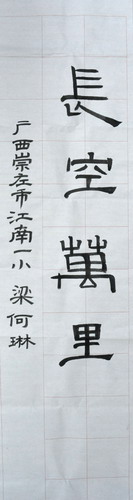 長空萬里
广西崇左市江南一小 梁何琳